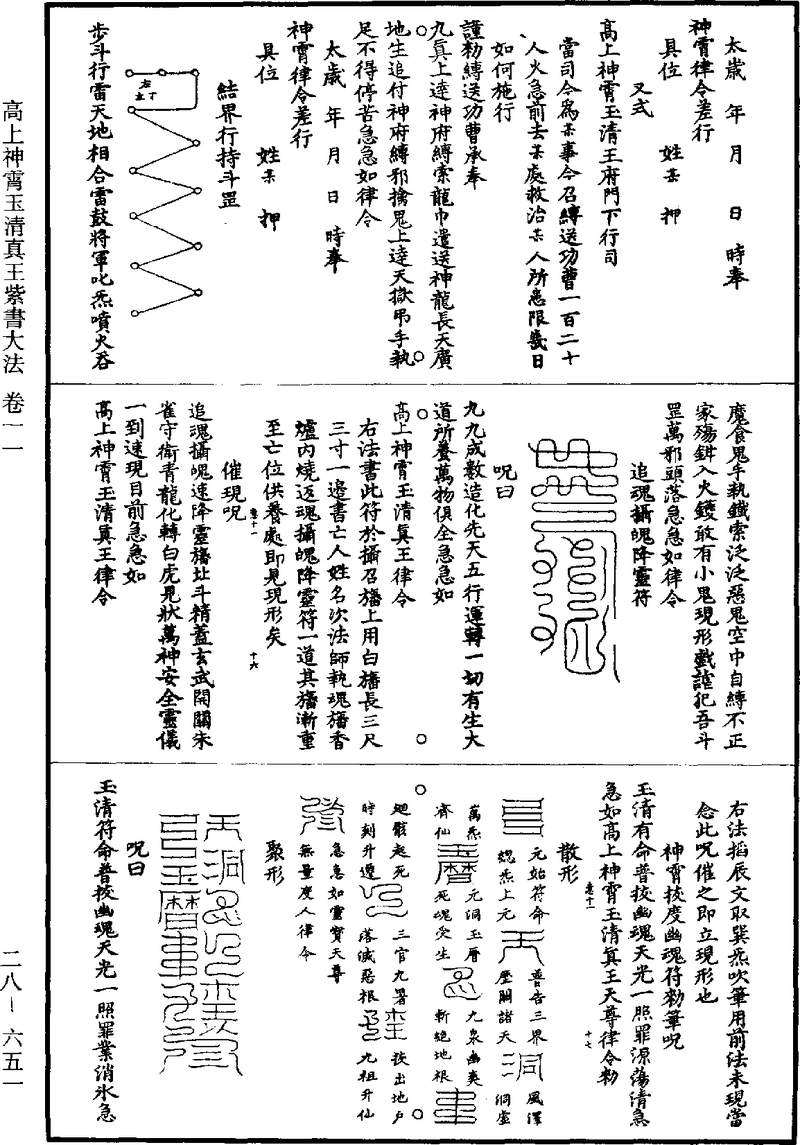 高上神霄玉清真王紫書大法　卷一一
二八－六五一
太歲　年　月　日　時奉
神霄律令差行
具位　姓某　押
又式
高上神霄玉清王府門下行司
當司今為某事今召縛送功曹一百二十
人火急前去某處救治某人所患限幾日
如何施行
謹勑縛送功曹承奉
九真上達神府縛索龍巾遣送神龍長天廣
地生追付神府縛邪擒鬼上達天獄吊手執
足不得停苦急急如律令
太歲　年　月　日　時奉
神霄律令差行
具位　姓某　押
結界行持斗罡
步斗行雷天地相合雷鼓將軍叱炁噴火吞
魔食鬼手執鐵索泛泛惡鬼空中自縛不正
家殤鉗入火鑊敢有小鬼現形戲謔犯吾斗
罡萬邪頭落急急如律令
追魂攝魄降靈符
呪曰
九九成數造化先天五行運轉一切有生大
道所養萬物俱全急急如
高上神霄玉清真王律令
右法書此符於攝召旛上用白旛長三尺
三寸一邊書亡人姓名次法師執魂旛香
爐內燒迈魂攝魄降靈符一道其旛漸重
至亡位供養處即見現形矣
催現呪
卷十一
十六
追魂攝魄速降靈旛北斗精蓋玄武開關朱
雀守衛青龍化轉白虎見狀萬神安全靈儀
一到速現目前急急如
高上神霄玉清真王律令
右法搯辰文取巽炁吹筆用前法未現當
念此呪催之即立現形也
神霄拔度幽魂符勑筆呪
玉清有命普救幽魂天光一照罪源蕩清急
急如高上神霄玉清真王天尊律令勑
卷十一
十七
散形
元始符命
普告三界
風澤
總炁上元
歷關諸天
洞虛
萬炁
元洞玉曆
九泉幽爽
齊仙
死魂受生
斬絕地根
廻骸起死
三官九署
拔出地戶
時刻升遷
落滅惡根
九祖升仙
急急如靈寶天尊
無量度人律令
聚形
呪曰
玉清符命普救幽魂天光一照罪業消氷急